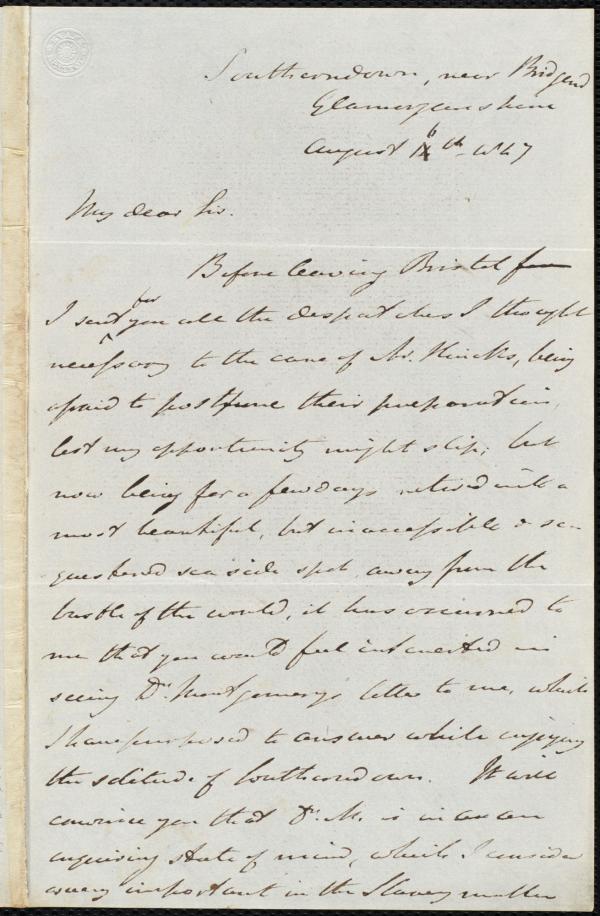 Southerndown, near Bridgend
Glamorganshire
August 16th 1847
My dear Sir.
Before leaving Bristol for
I sent for you all the despatches I thought
necessary to the care of Mr. Hincks, being
afraid to postpone their preparation,
lest my opportunity might slip; but
now being for a few days retired into a
most beautiful, but inaccessible & se-
questered sea side spot, away from the
bustle of the world, it has occurred to
me that you would feel interested in
seeing Dr. Montgomery's letter to me, which
I have purposed to answer while enjoying
the solitude of Southerndown. It will
convince you that Dr. M. is in an
enquiring state of mind, which I consider
very important in the Slavery matter